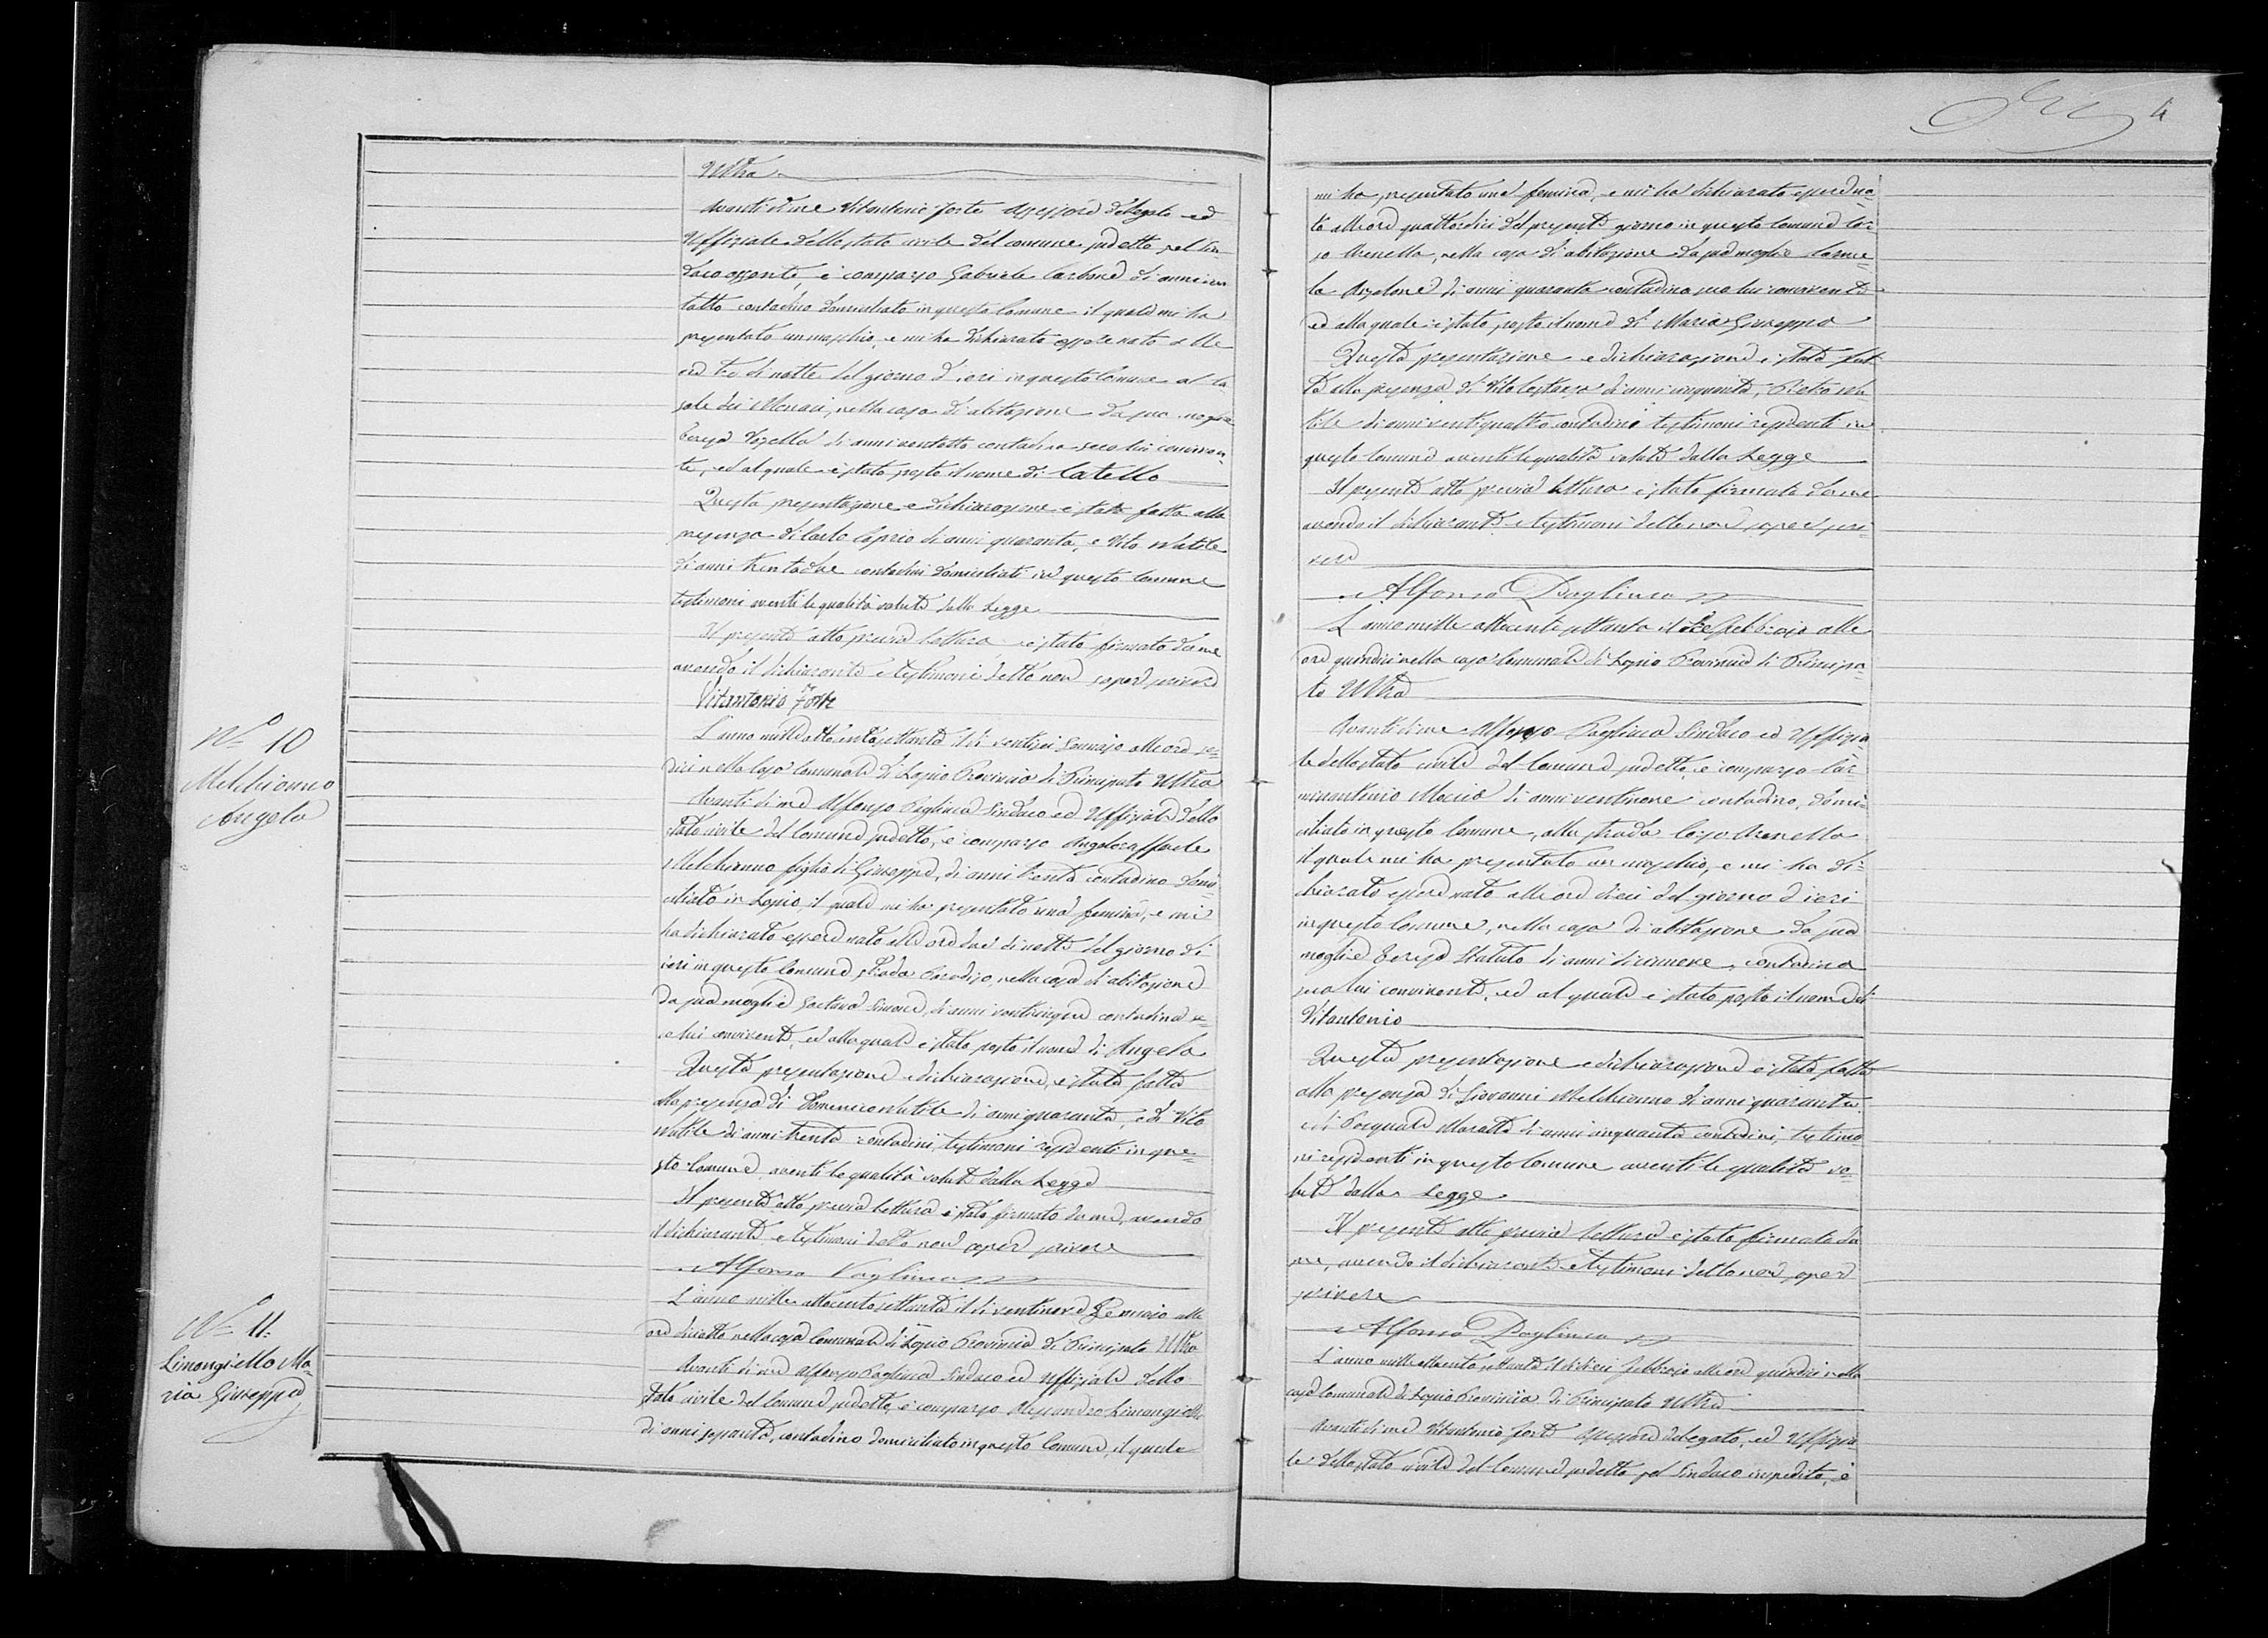 Ultra
Avanti di me Vitantonio Forte Assessore delegato ed
Uffiziale dello stato civile del comune sudetto pel Sin
daco assente, è comparso Gabriele Carbone di anni ven
totto contadino domiciliato in questo Comune il quale mi ha
presentato un maschio, e mi ha dichiarato essere nato alle
ore tre di notte del giorno d'ieri in questo Comune al Ca
sale dei Monaci, nella casa di abitazione da sua moglie
Teresa di anni ventotto contadina seco lui conviven
te, ed al quale è stato posto il nome di Catello
Questa presentazione e dichiarazione è stata fatta alla
presenza di Carlo Caprio di anni quaranta, e Vito Natile
di anni trentadue contadini domiciliati in questo Comune
testimoni aventi le qualità volute dalla Legge
Il presente atto previa lettura è stato firmato da me
avendo il dichiarante e testimoni detto non saper scrivere
Vitantonio Forte
N.o 10
Melchionno
Angela
L'anno mille ottocento settanta il dì ventisei Gennajo alle ore se
dici nella Casa Comunale di Lapio Provincia di Principato Ultra
Avanti di me Alfonso Pagliuca Sindaco ed Uffiziale dello
stato civile del Comune sudetto, è comparso Angeloraffaele
Melchionno figlio di Giuseppe, di anni trenta contadino domi
ciliato in Lapio, il quale mi ha presentato una femina, e mi
ha dichiarato essere nata alle ore due di notte del giorno di
ieri in questo Comune strada Paradiso, nella casa di abitazione
da sua moglie Gaetana Simone, di anni venticinque contadina se
co lui convivente, ed alla quale è stato posto il nome di Angela
Questa presentazione e dichiarazione, è stata fatta
alla presenza di Domenico Natile di anni quaranta, e di Vito
Natile di anni trenta contadini, testimoni residenti in que
sto Comune, aventi le qualità volute dalla Legge
Il presente atto previa lettura è stato firmato da me, avendo
il dichiarante e testimoni detto non saper scrivere
Alfonso Pagliuca
N.o 11.
Limongiello Ma
ria Giuseppa
L'anno mille ottocento settanta il dì ventinove Gennajo alle
ore diciotto nella casa Comunale di Lapio Provincia di Principato Ultra
Avanti di me Alfonso Pagliuca Sindaco ed Uffiziale dello
stato civile del Comune sudetto, è comparso Alessandro Limongiello
di anni sessanta, contadino domiciliato in questo Comune, il quale
4
mi ha presentato una femina, e mi ha dichiarato essere na
ta alle ore quattordici del presente giorno in questo Comune Cor
so Arenella, nella casa di abitazione da sua moglie Carme
la di anni quaranta contadina seco lui convivente
ed alla quale è stato posto il nome di Maria Giuseppa
Questa presentazione e dichiarazione è stata fat
ta alla presenza di Vito di anni cinquanta, Pietro Na
tile di anni ventiquattro contadini testimoni residenti in
questo Comune aventi le qualità volute dalla Legge
Il presente atto previa lettura è stato firmato da me
avendo il dichiarante e testimoni detto non sapere scri
vere
Alfonso Pagliuca
L'anno mille ottocento settanta il tre Febbrajo alle
ore quindici nella casa Comunale di Lapio Provincia di Principa
to Ultra
Avanti di me Alfonso Pagliuca Sindaco ed Uffizia
le dello stato civile del Comune sudetto, è comparso Car
minantonio Moccia di anni ventinove contadino, domi
ciliato in questo Comune, alla strada Corso Arenella
il quale mi ha presentato un maschio, e mi ha di
chiarato essere nato alle ore dieci del giorno d'ieri
in questo Comune, nella casa di abitazione da sua
moglie Teresa Statuto di anni diecinnove, contadina
seco lui convivente, ed al quale è stato posto il nome di
Vitantonio
Questa presentazione e dichiarazione è stata fatta
alla presenza di Giovanni Melchionno di anni quaranta
e di Pasquale di anni cinquanta contadini, testimo
ni residenti in questo Comune aventi le qualità vo
lute dalla Legge
Il presente atto previa lettura è stato firmato da
me, avendo il dichiarante e testimoni detto non saper
scrivere
Alfonso Pagliuca
L'anno mille ottocento settanta il dì dieci Febbrajo alle ore quindici nella
casa Comunale di Lapio Provincia di Principato Ultra
Avanti di me Vitantonio Forte Assessore delegato, ed Uffizia
le dello stato civile del Comune sudetto pel Sindaco impedito, è